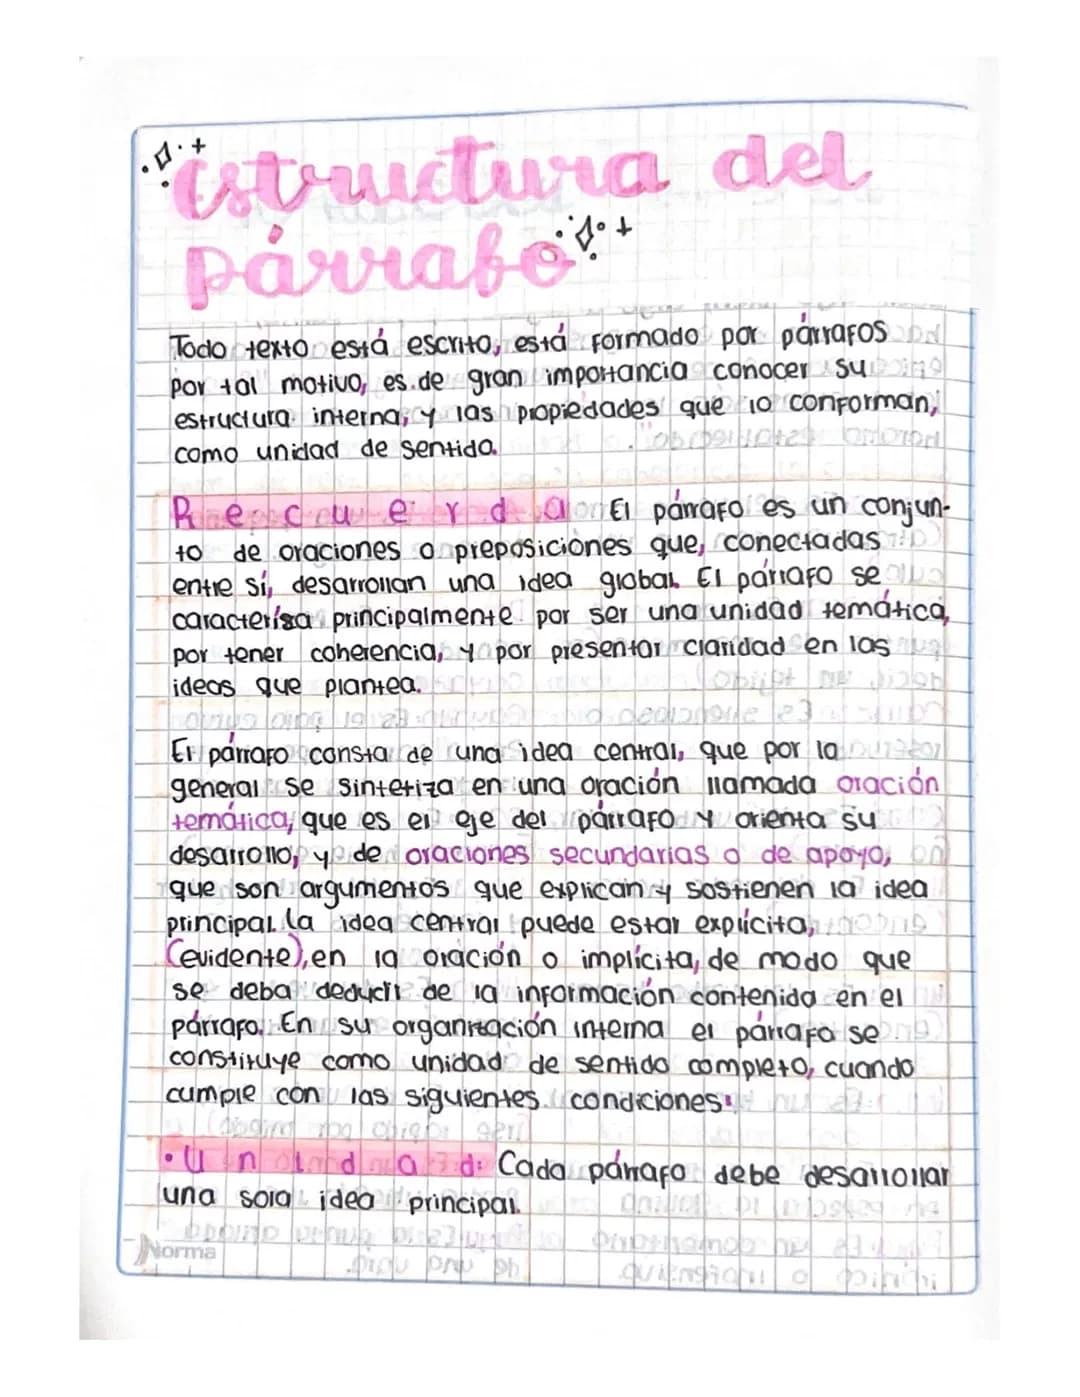 Estructura del
párrafo
Todo texto está escrito, está formado por párrafos
por tal motivo, es de gran importancia conocer su
estructura interna, y las propiedades que lo conforman,
como unidad de sentido.
Recuerda El párrafo es un conjun-
to de oraciones o preposiciones que, conectadas
entre sí, desarrollan una idea global. El párrafo se
caracteríza principalmente por ser una unidad temática,
por tener coherencia, y por presentar claridad en las
ideas que plantea.
El párrafo consta de una idea central, que por lo
general se sintetiza en una oración llamada oración
temática, que es el eje del párrafo y orienta su
desarrollo, y de oraciones secundarias o de apoyo,
que son argumentos que explican y sostienen la idea
principal. La idea central puede estar explícita,
(evidente), en la oración o implícita, de modo que
se deba deducir de la información contenida en el
párrafo. En su organización interna el párrafo se
constituye como unidad de sentido completo, cuando
cumple con las siguientes condiciones:
• Unidad: Cada párrafo debe desarrollar
una sola idea principal.
Norma